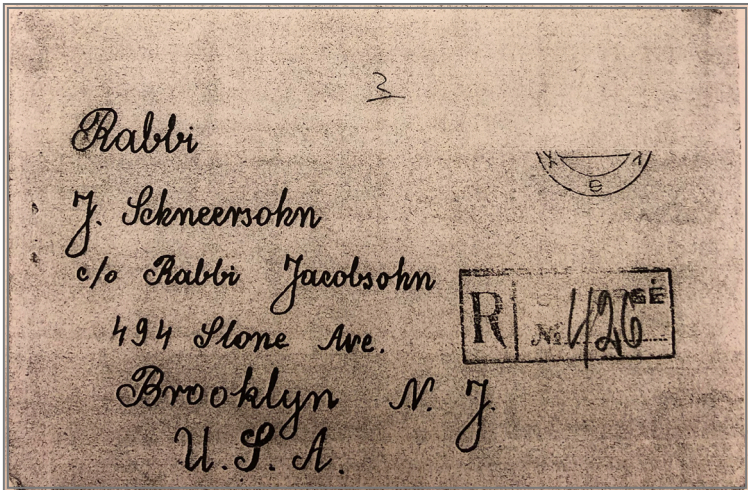 3
Rabbi
J. Schneersohn
c/o Rabbi Jacobsohn
R № 426
494 Stone Ave.
Brooklyn N. J.
U.S.A.